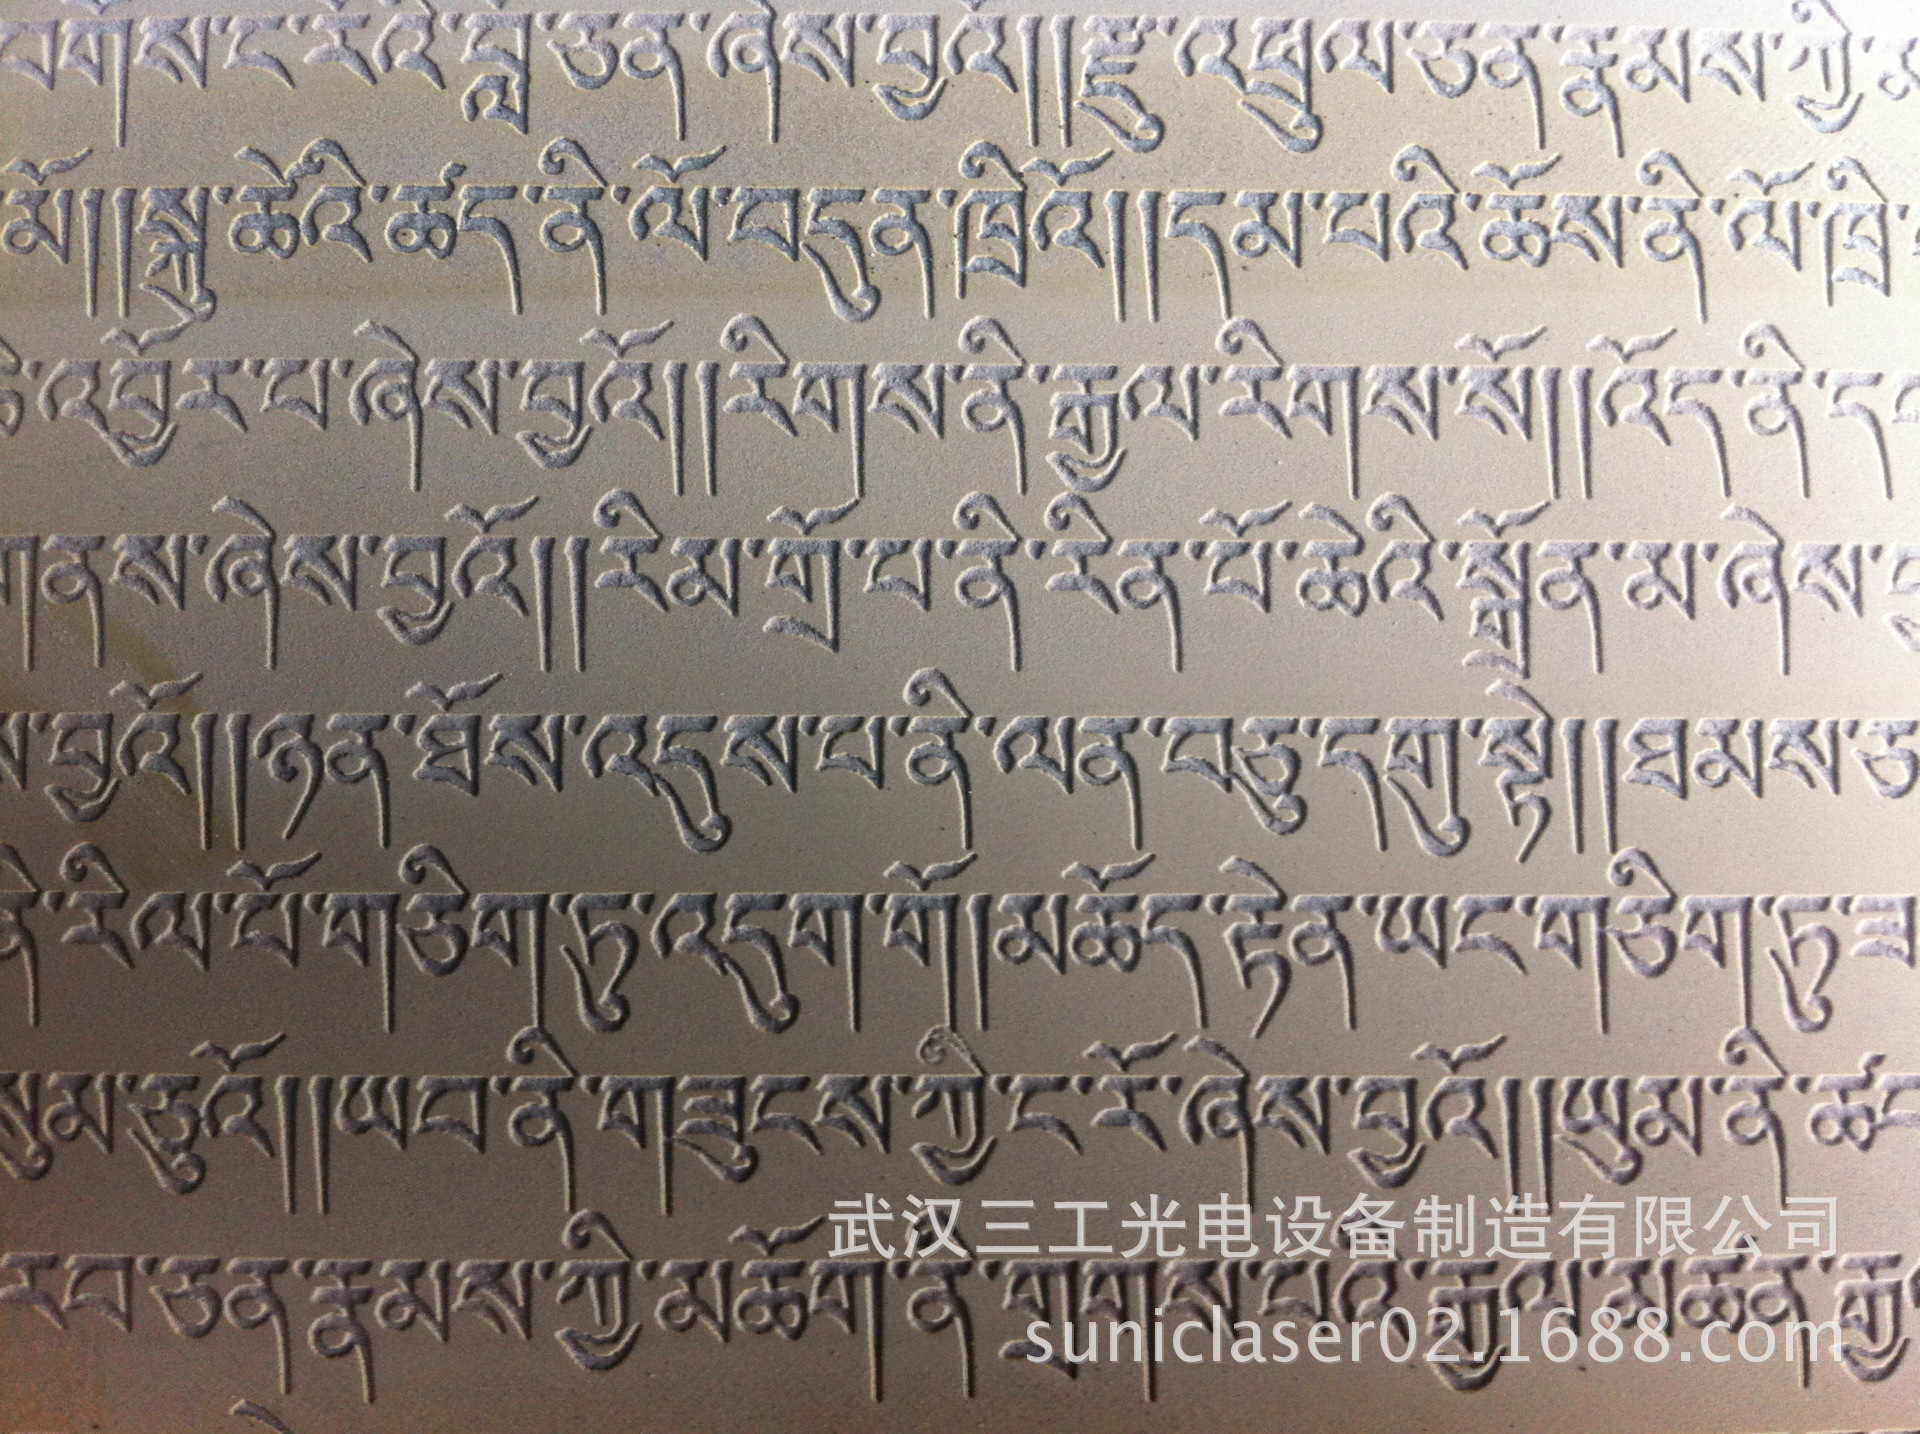 པག།སང་ངའི་བླ་ཅན་ཞེས་བྱའོ།།རྫུ་འཕྲུལ་ཅན་རྣམས་ཀྱི་
མོ།།སྐུ་ཚེའི་ཚད་ནི་ལོ་བདུན་ཁྲིའོ།།དམ་པའི་ཆོས་ནི་ལོ་ཁྲི་
འབྱོར་པ་ཞེས་བྱའོ།།རིགས་ནི་རྒྱལ་རིགས་སོ།།འོད་ནི་
གནས་ཞེས་བྱའོ།།རིམ་གྲོ་པ་ནི་རིན་པོ་ཆེའི་སྒྲོན་མ་ཞེས་
ས་བྱའོ།།ཉན་ཐོས་འདུས་པ་ནི་ལན་བཅུ་དགུ་སྟེ།།ཐམས་ཅ
ནི་རིལ་པོ་གཅིག་ཏུ་འདུག་གོ།མཆོད་རྟེན་ཡང་གཅིག་ཏུ་ཟ
སུམ་ཅུའོ།།ཡབ་ནི་གཟུངས་ཀྱི་ང་རོ་ཞེས་བྱའོ།།ཡུམ་ནི་ཚང
རབ་ཅན་རྣམས་ཀྱི་མཆོག་ནི་གྲགས་པའི་རྒྱལ་མཚན་
武汉三工光电设备制造有限公司
suniclaser02.1688.com